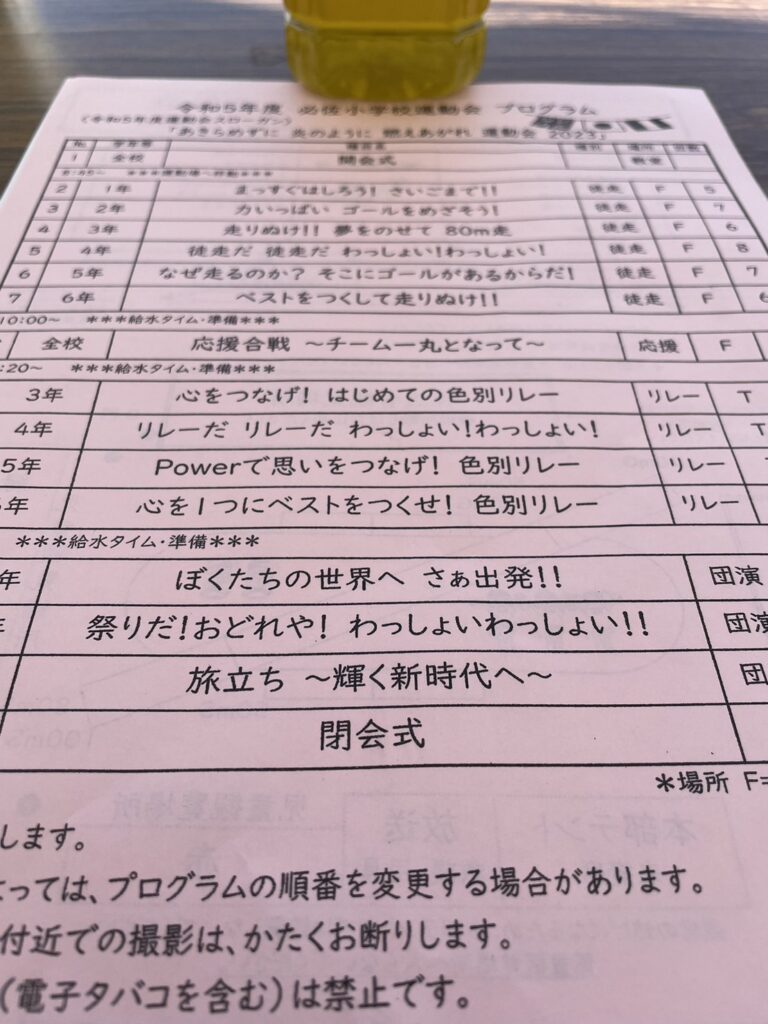 令和5年度 必佐小学校運動会 プログラム
(令和5年度運動会スローガン)
「あきらめずに 炎のように 燃えあがれ 運動会 2023」
1 全校 開会式
***運動場へ移動***
2 1年 まっすぐはしろう! さいごまで!! 徒走 F 5
3 2年 力いっぱい ゴールをめざそう! 徒走 F 7
4 3年 走りぬけ!! 夢をのせて 80m走 徒走 F 6
5 4年 徒走だ 徒走だ わっしょい!わっしょい! 徒走 F 8
6 5年 なぜ走るのか? そこにゴールがあるからだ! 徒走 F 7
7 6年 ベストをつくして走りぬけ!! 徒走 F 6
10:00~ ***給水タイム・準備***
全校 応援合戦 ~チーム一丸となって~ 応援 F
:20~ ***給水タイム・準備***
3年 心をつなげ! はじめての色別リレー リレー T
4年 リレーだ リレーだ わっしょい!わっしょい! リレー T
5年 Powerで思いをつなげ! 色別リレー リレー T
年 心を1つにベストをつくせ! 色別リレー リレー
***給水タイム・準備***
年 ぼくたちの世界へ さぁ出発!! 団演
祭りだ!おどれや! わっしょいわっしょい!! 団演
旅立ち ~輝く新時代へ~ 団
閉会式
*場所 F=
します。
よっては、プログラムの順番を変更する場合があります。
付近での撮影は、かたくお断りします。
(電子タバコを含む)は禁止です。